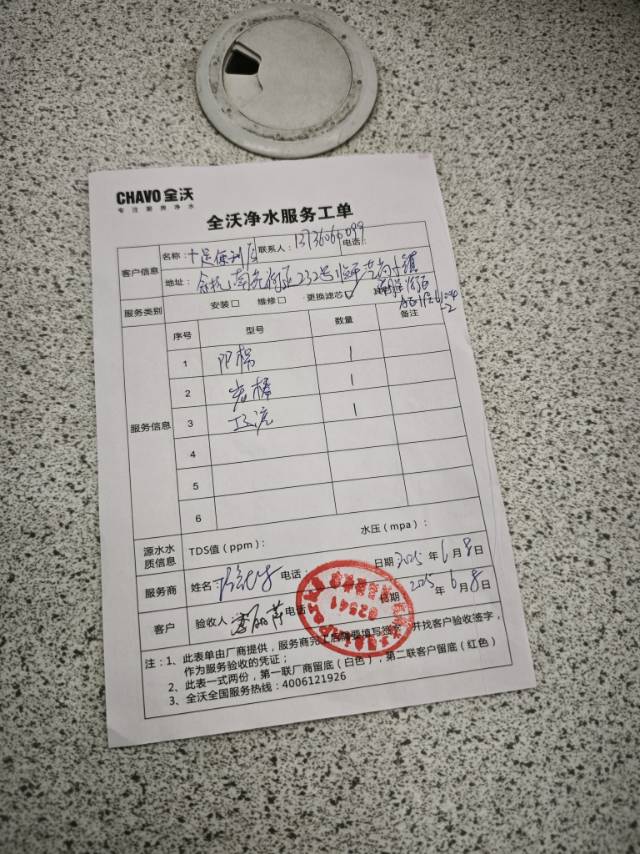 CHAVO 全沃
专注厨房净水
全沃净水服务工单
客户信息
名称：十足便利店 联系人：13736066099 电话：
地址：余杭南苑街道232号
服务类别 安装□ 维修□ 更换滤芯☑
服务信息
序号 型号 数量 备注
1 PP棉 1
2 炭棒 1
3 1
4
5
6
源水水质信息 TDS值（ppm）： 水压（mpa）：
服务商 姓名 电话： 日期 2025 年 6 月 8 日
客户 验收人 电话 日期：2025 年 6 月 8 日
02541
注：1、此表单由厂商提供，服务商完工后需要填写签字，并找客户验收签字，
作为服务验收的凭证；
2、此表一式两份，第一联厂商留底（白色），第二联客户留底（红色）
3、全沃全国服务热线：4006121926